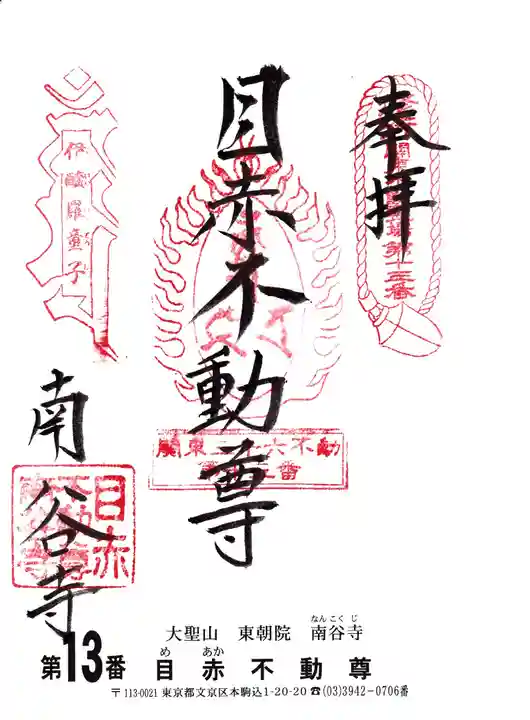 奉拝
第十三番
目赤不動尊
関東三十六不動
伊醯羅童子
南谷寺
目赤
大聖山 東朝院 南谷寺
なんこくじ
第13番 目赤不動尊
め あか
〒113-0021 東京都文京区本駒込1-20-20 ☎(03)3942-0706番